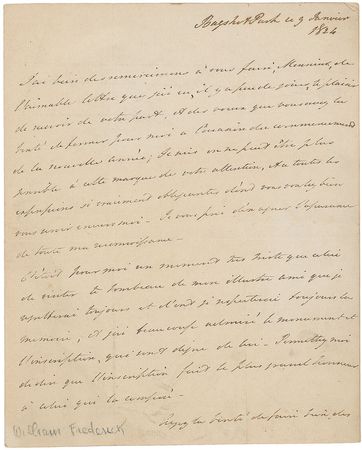 Bagshot Park ce 9 Janvier
1824
J'ai bien des remerciemens à vous faire, Monsieur, de
l'aimable lettre que j'ai eu, il y a peu de jours, le plaisir
de recevoir de votre part, et des voeux que vous avez la
bonté de former pour moi à l'occasion du commencement
de la nouvelle année; Je suis on ne peut être plus
sensible à cette marque de votre attention, et toutes les
expressions si vraiment obligeantes dont vous voulez bien
vous servir envers moi - Je vous prie d'en agréer l'assurance
de toute ma reconnoissance -
C'étoit pour moi un moment très triste que celui
de visiter le tombeau de mon illustre ami que je
regretterai toujours et dont je respecterai toujours la
memoire, et j'ai beaucoup admiré le monument et
l'inscription, qui sont digne de lui - Permettez moi
de dire que l'inscription fait le plus grand honneur
à celui qui l'a composé -
Ayez la bonté de faire bien des
William Frederick